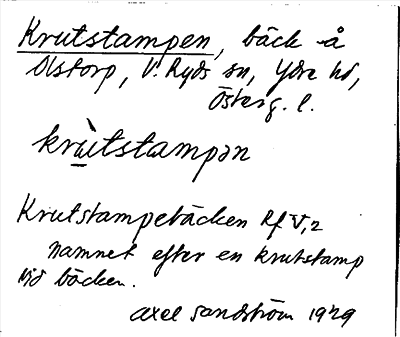 Krutstampen, bäck å
Olstorp, V. Ryds sn, Ydre hd,
Österg. l.
krùtstampən
Krutstampebäcken Rf V,2
namnet efter en krutstamp
vid bäcken.
Axel Sandström 1929